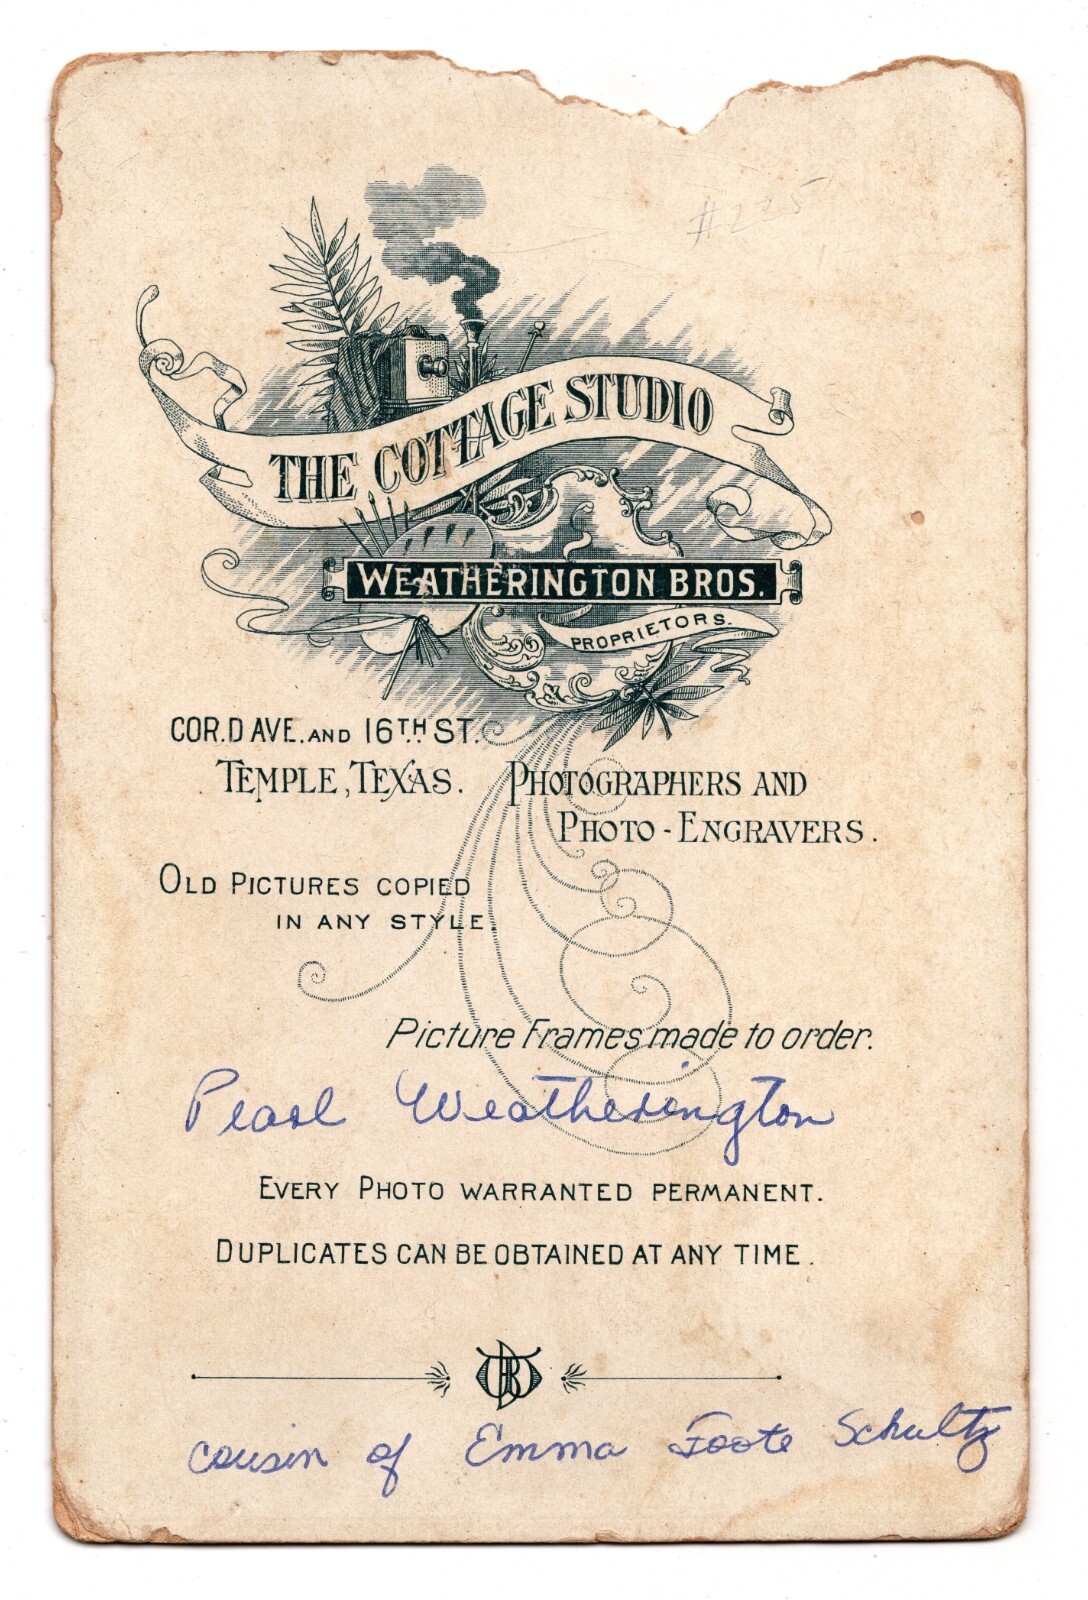 #225
THE COTTAGE STUDIO
WEATHERINGTON BROS.
PROPRIETORS.
COR. D AVE. AND 16TH ST.
TEMPLE, TEXAS.
PHOTOGRAPHERS AND
PHOTO-ENGRAVERS.
OLD PICTURES COPIED
IN ANY STYLE.
Picture Frames made to order.
Pearl Weatherington
EVERY PHOTO WARRANTED PERMANENT.
DUPLICATES CAN BE OBTAINED AT ANY TIME.
cousin of Emma Foote Schultz